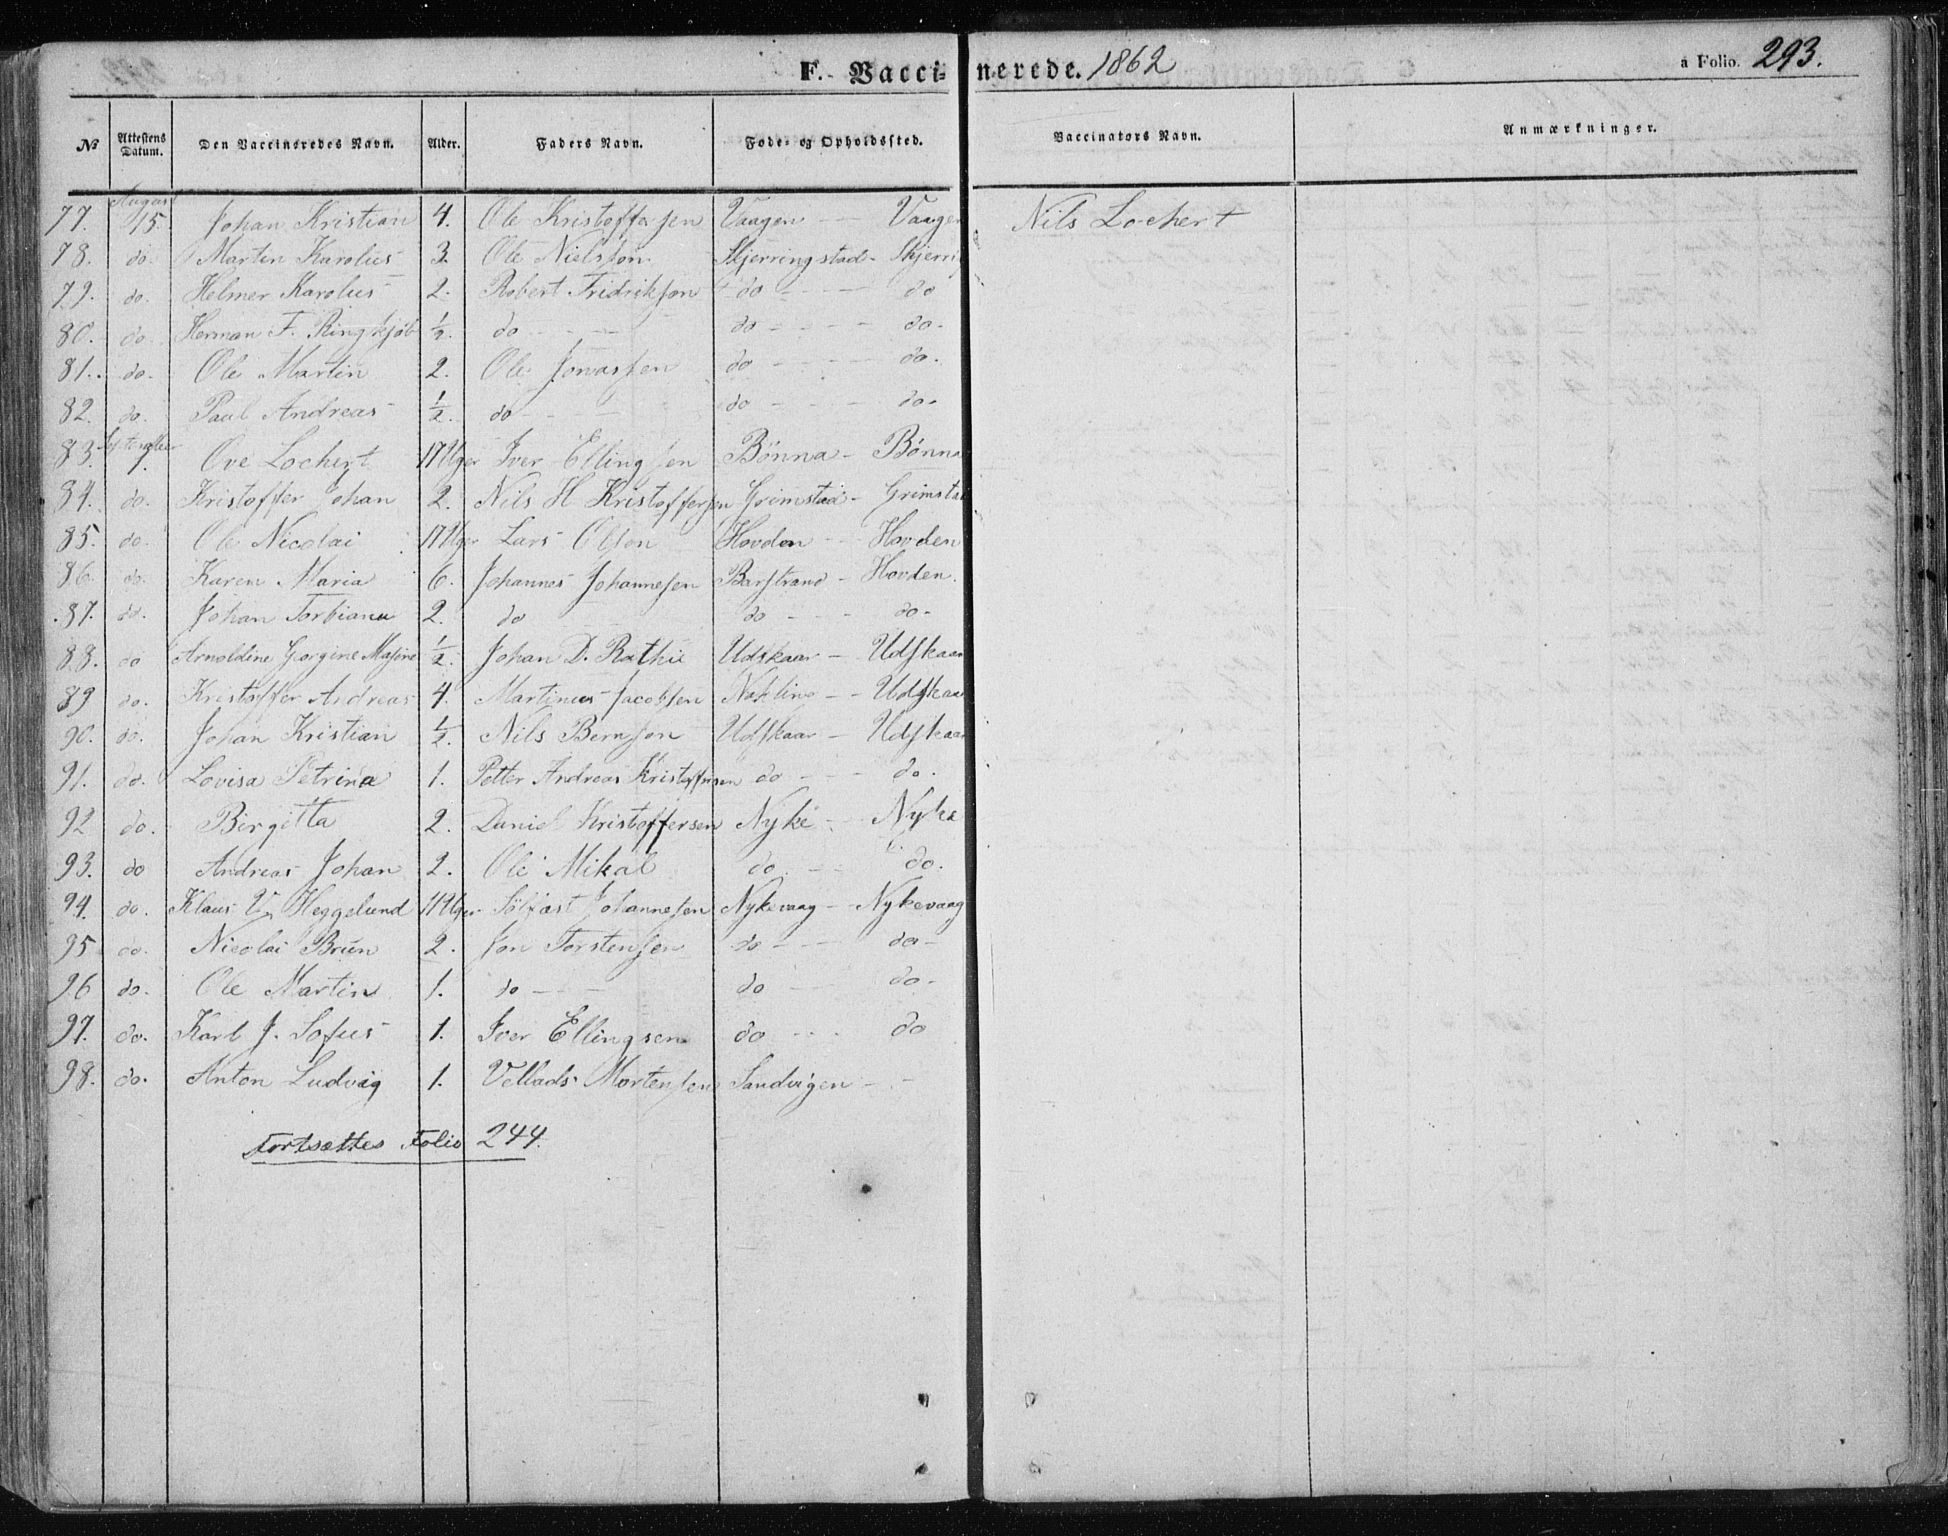 F. Vaccinerede. 1862 a Folio. 293.
№ Attestens Datum. Den Vaccineredes Navn. Alder. Faders Navn. Føde- og Opholdssted. Vaccinators Navn. Anmærkninger.
77. August 15. Johan Kristian 4. Ole Kristoffersen Vaagen - Vaagen Nils Lochert
78. do. Martin Karolus 3. Ole Nielsson Skjerringstad - Skjerri
79. do. Helmer Karolus 2. Robert Fridrikson do - do
80. do. Herman F. Ringkjøb 1/2. do - do - do.
81. do. Ole Martin 2. Ole Jonassen do - do.
82. do. Paul Andreas 1/2. do - do - do.
83. September 7. Ove Lochert 17 Uger Iver Ellingsen Bønna - Bønna
84. do. Kristoffer Johan 2. Nils H Kristoffersen Grimstad - Grimstad
85. do. Ole Nicolai 17 Uger Lars Olson Hovden - Hovden
86. do. Karen Maria 6. Johannes Johannesen Barstrand - Hovden.
87. do. Johan Torbian 2. do do - do.
88. do Arnoldine Georgine Masine 1/2. Johan D. Rathie Udskaar - Udskaar
89 do. Kristoffer Andreas 4. Martinus Jacobsen - Udskaar
90. do. Johan Kristian 1/2. Nils Bernson Udskaar - Udskaar
91. do. Lovisa Petrina 1. Petter Andreas Kristoffersen do - do.
92 do. Birgitta 2. Daniel Kristoffersen Nyke - Nyke
93. do Andreas Johan 2. Ole Mikal do. - do.
94. do. Klaus V. Heggelund 11 Uger Sølfæst Johannesen Nykevaag - Nykevaag
95 do. Nicolai Brun 2. Jon Torstensen do - do -
96 do. Ole Martin 1. do - do - do.
97. do. Karl J. Sofus 1. Iver Ellingsen do - do
98. do. Anton Ludvig 1. Vellads Mortensen Sandvigen -
Fortsættes Folio 244.